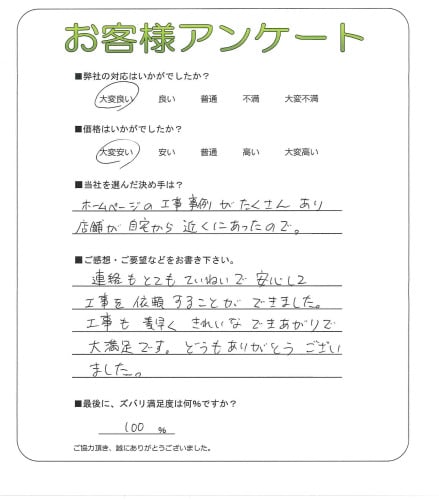 お客様アンケート
■弊社の対応はいかがでしたか？
大変良い 良い 普通 不満 大変不満
■価格はいかがでしたか？
大変安い 安い 普通 高い 大変高い
■当社を選んだ決め手は？
ホームページの工事事例がたくさんあり
店舗が自宅から近くにあったので。
■ご感想・ご要望などをお書き下さい。
連絡もとてもていねいで安心して
工事を依頼することができました。
工事も素早くきれいなできあがりで
大満足です。どうもありがとうござい
ました。
■最後に、ズバリ満足度は何%ですか？
100 %
ご協力頂き、誠にありがとうございました。